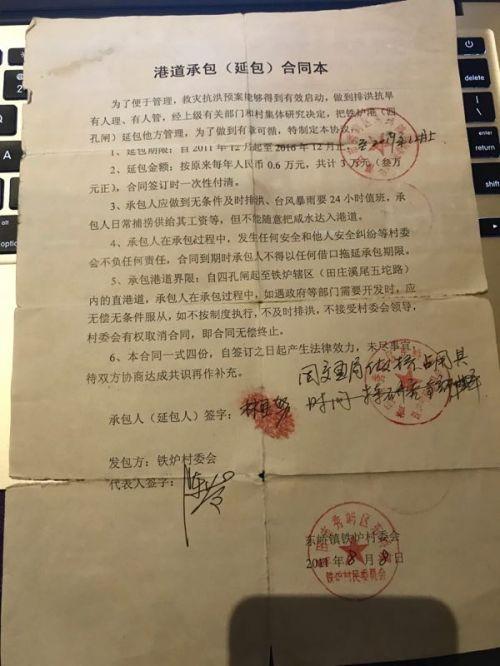 港道承包（延包）合同本
为了便于管理，救灾抗洪预案能够得到有效启动，做到排洪抗旱
有人理、有人管，经上级有关部门和村集体研究决定，把铁炉港（四
孔闸）延包他方管理，为了做到有章可循，特制定本协议。
1、延包期限：自2011年12月起至2016年12月止。
2、延包金额：按原来每年人民币0.6万元，共计3万元（叁万
元正），合同签订时一次性付清。
3、承包人应做到无条件及时排洪、台风暴雨要24小时值班，承
包人日常捕捞供给其工资等，但不能随意把咸水达入港道。
4、承包人在承包过程中，发生任何安全和他人安全纠纷等村委
会不负任何责任，合同到期时承包人不得以任何借口拖延承包期限。
5、承包港道界限：自四孔闸起至铁炉辖区（田庄溪尾五坨路）
内的直港道，承包人在承包过程中，如遇政府等部门需要开发时，应
无偿无条件服从，如不按制度执行，不及时排洪，不接受村委会领导，
村委会有权取消合同，即合同无偿终止。
6、本合同一式四份，自签订之日起产生法律效力，未尽事宜，
待双方协商达成共识再作补充。
承包人（延包人）签字：
发包方：铁炉村委会
代表人签字：
东峤镇铁炉村委会
2011年8月8日
铁炉村民委员会